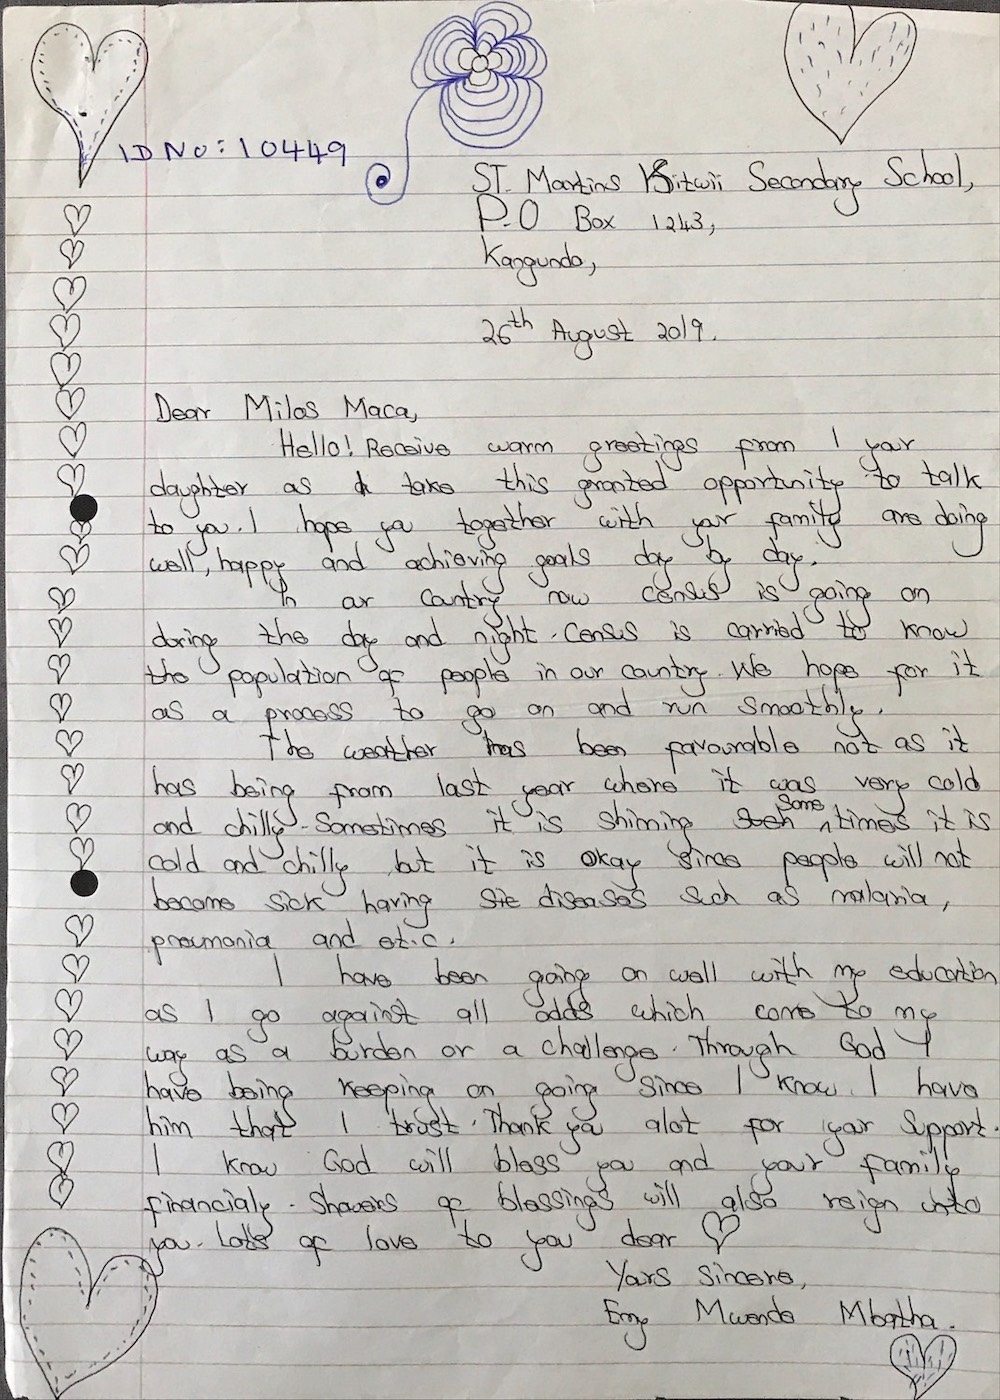 ID No: 10449
ST. Martins Kitwii Secondary School,
P.O Box 1243,
Kangundo,
26th August 2019.
Dear Milos Maca,
Hello! Receive warm greetings from I your
daughter as I take this granted opportunity to talk
to you. I hope you together with your family are doing
well, happy and achieving goals day by day.
In our country now census is going on
during the day and night. Census is carried to know
the population of people in our country. We hope for it
as a process to go on and run smoothly.
The weather has been favourable not as it
has being from last year where it was very cold
and chilly. Sometimes it is shining some times it is
cold and chilly but it is okay since people will not
become sick having diseases such as malaria,
pneumonia and et.c.
I have been going on well with my education
as I go against all odds which come to my
way as a burden or a challenge. Through God I
have being keeping on going since I know I have
him that I trust. Thank you alot for your support.
I know God will bless you and your family
financialy. Showers of blessings will also reign unto
you. Lots of love to you dear
Yours sincere,
Mwende Mbatha.